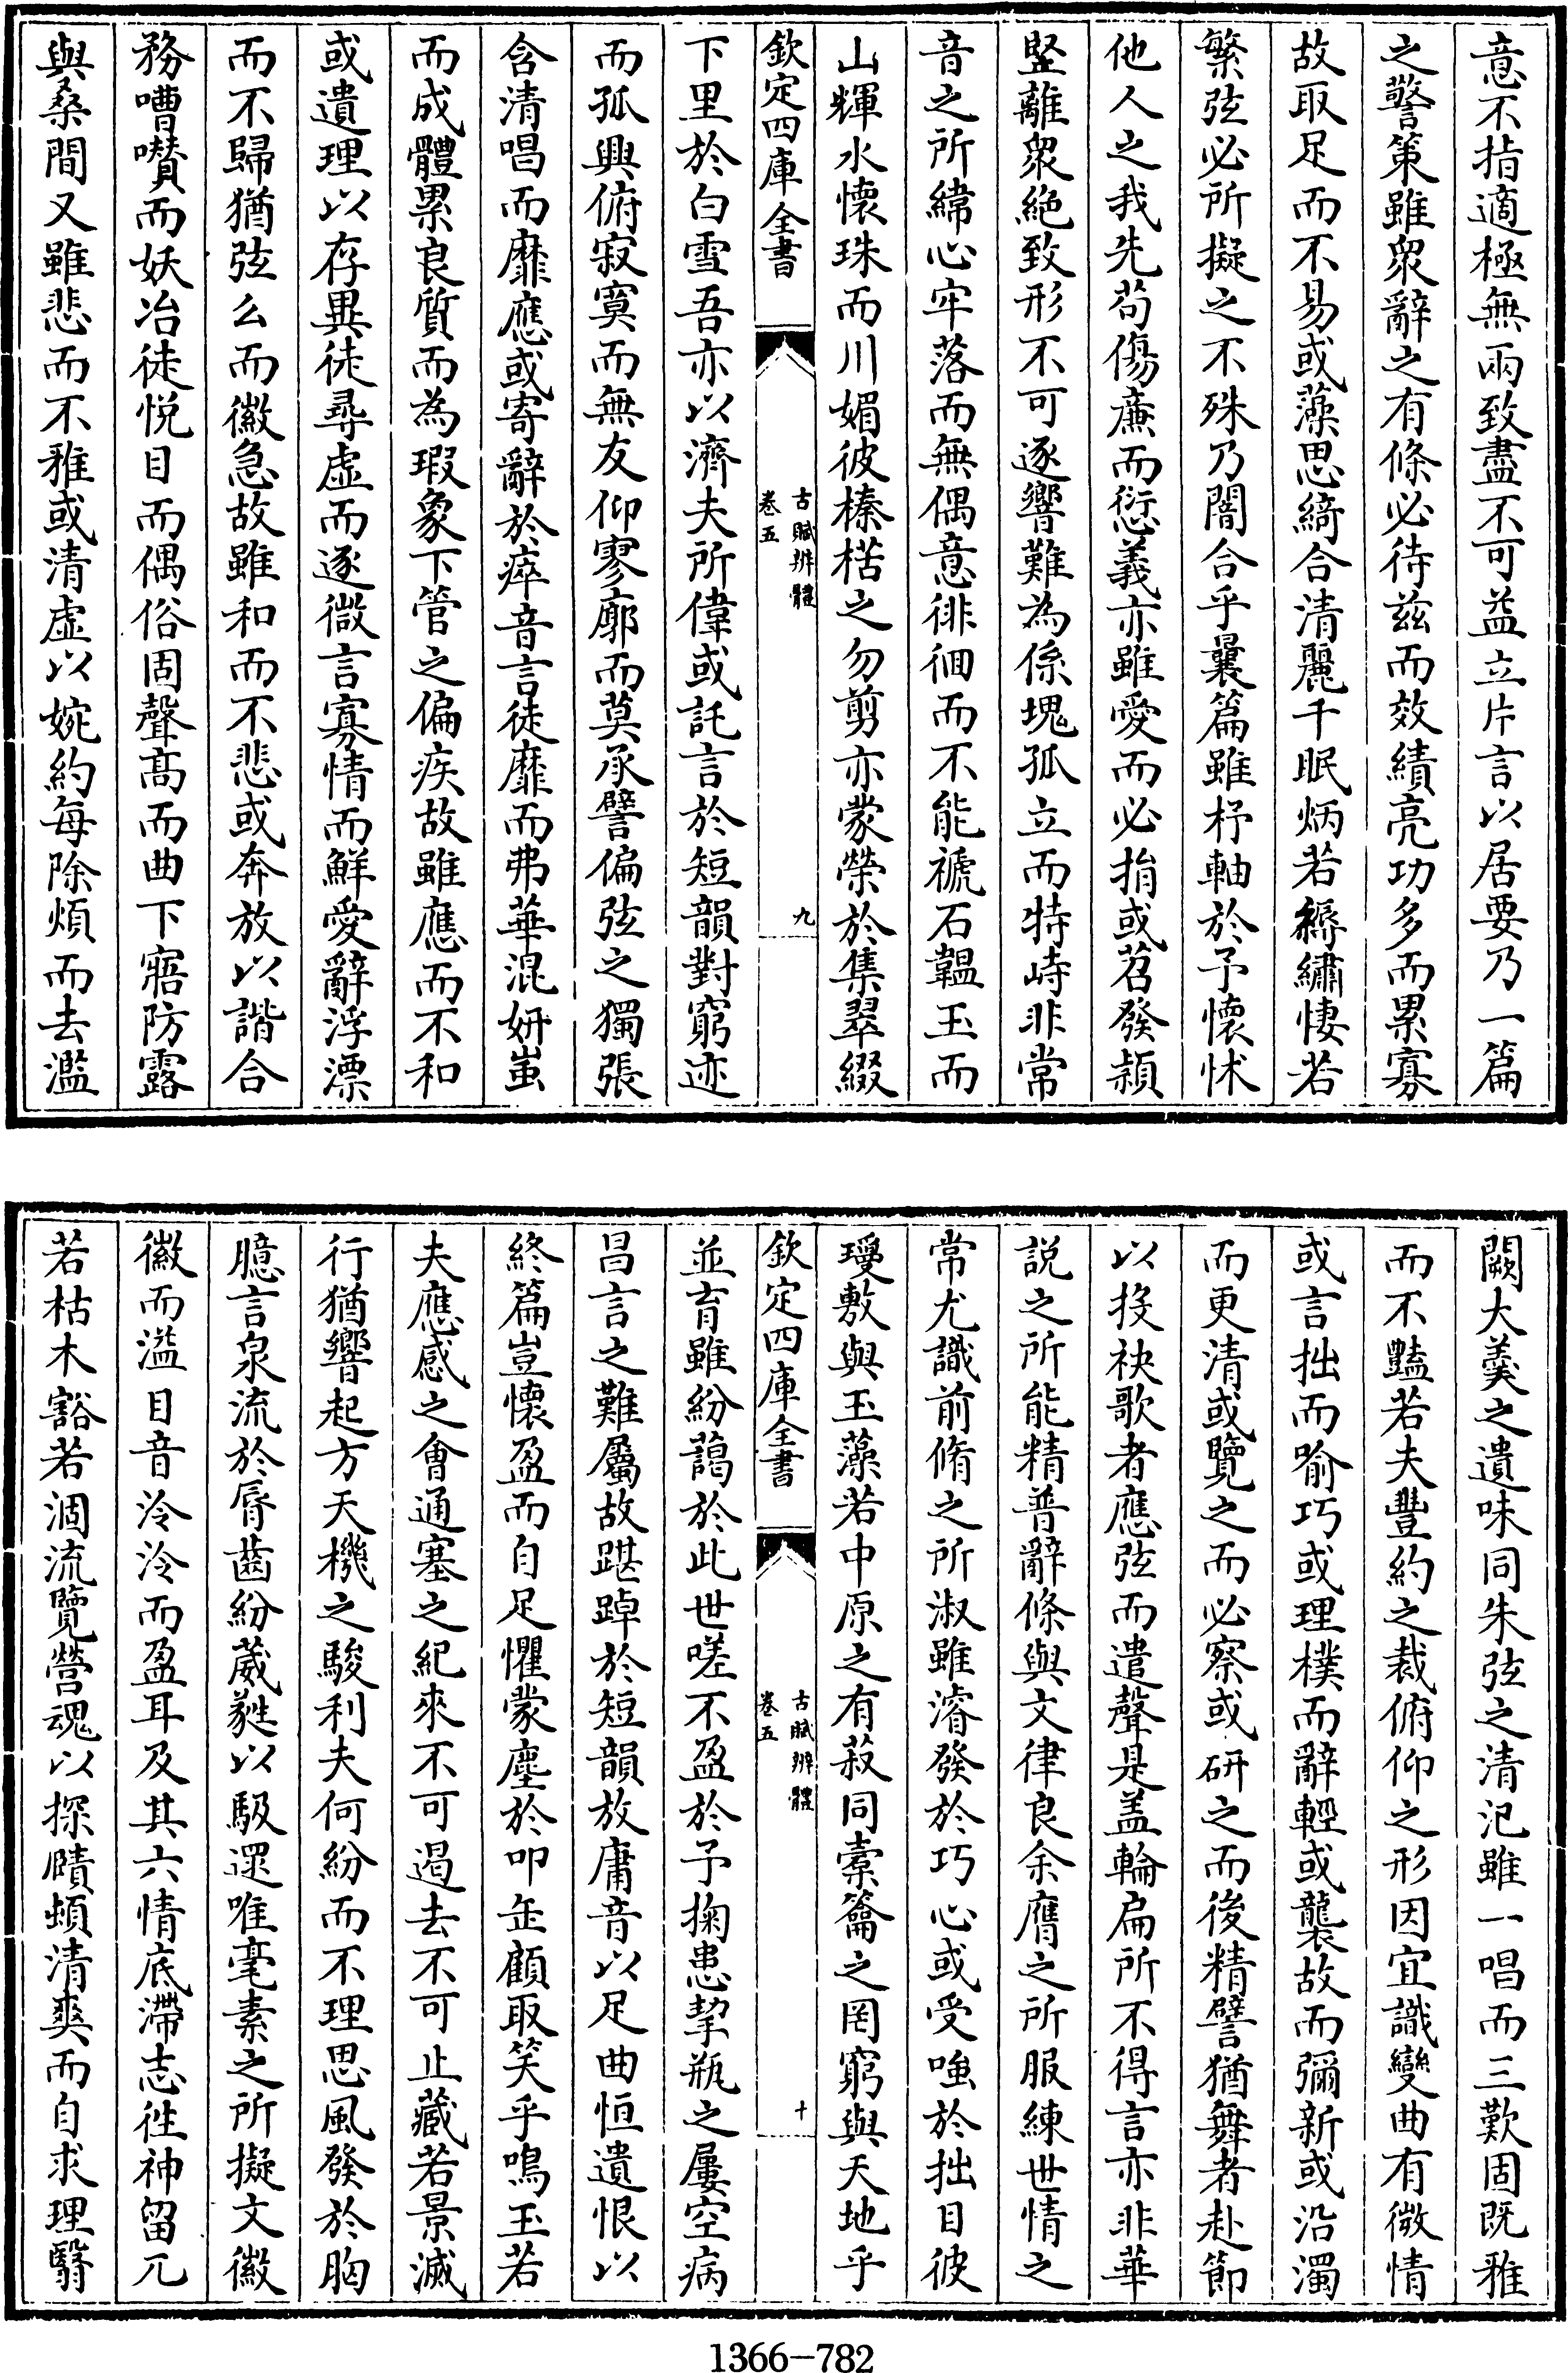 意不指適極無兩致盡不可益立片言以居要乃一篇
之警策雖衆辭之有條必待兹而效績亮功多而累寡
故取足而不易或藻思綺合清麗千眠炳若縟繡悽若
繁弦必所擬之不殊乃闇合乎曩篇雖杼軸於予懷怵
他人之我先苟傷廉而愆義亦雖愛而必捐或苕發穎
竪離衆絶致形不可逐響難為係塊孤立而特峙非常
音之所緯心牢落而無偶意徘徊而不能禠石韞玉而
山輝水懷珠而川媚彼榛楛之勿剪亦蒙榮於集翠綴
欽定四庫全書
古賦辨體
卷五
九
下里於白雪吾亦以濟夫所偉或託言於短韻對窮迹
而孤興俯寂寞而無友仰寥廓而莫承譬偏弦之獨張
含清唱而靡應或寄辭於瘁音言徒靡而弗華混妍蚩
而成體累良質而為瑕象下管之偏疾故雖應而不和
或遺理以存異徒尋虚而逐微言寡情而鮮愛辭浮漂
而不歸猶弦么而徽急故雖和而不悲或奔放以諧合
務嘈囋而妖冶徒悦目而偶俗固聲髙而曲下寤防露
與桑間又雖悲而不雅或清虚以婉約每除煩而去濫
闕大羹之遺味同朱弦之清汜雖一唱而三歎固既雅
而不豔若夫豐約之裁俯仰之形因宜識變曲有微情
或言拙而喻巧或理樸而辭輕或襲故而彌新或沿濁
而更清或覽之而必察或研之而後精譬猶舞者赴節
以投袂歌者應弦而遣聲是盖輪扁所不得言亦非華
説之所能精普辭條與文律良余膺之所服練世情之
常尤識前脩之所淑雖濬發於巧心或受嗤於拙目彼
瓊敷與玉藻若中原之有菽同橐籥之罔窮與天地乎
欽定四庫全書
古賦辨體
卷五
十
並育雖紛藹於此世嗟不盈於予掬患挈瓶之屢空病
昌言之難屬故踸踔於短韻放庸音以足曲恒遺恨以
終篇豈懷盈而自足懼蒙塵於叩缶顧取笑乎鳴玉若
夫應感之會通塞之紀來不可遏去不可止藏若景滅
行猶響起方天機之駿利夫何紛而不理思風發於胸
臆言泉流於脣齒紛葳蕤以馺遝唯毫素之所擬文徽
徽而溢目音泠泠而盈耳及其六情底滯志徃神留兀
若枯木豁若涸流覽營魂以探賾頓清爽而自求理翳
1366-782